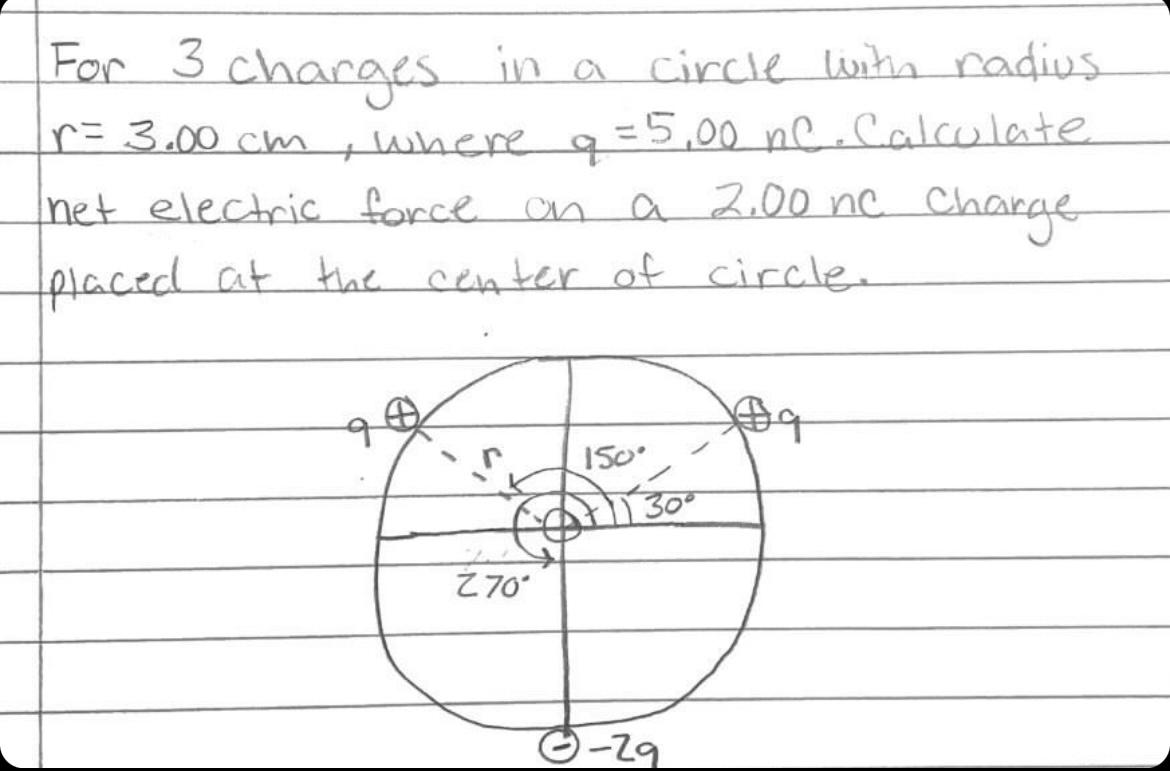 For 3 charges in a circle with radius
r= 3.00 cm , where q =5.00 nC. Calculate
net electric force on a 2.00 nc charge
placed at the center of circle.
q ⊕ ⊕ q
r 150°
30°
270°
⊖ -2q